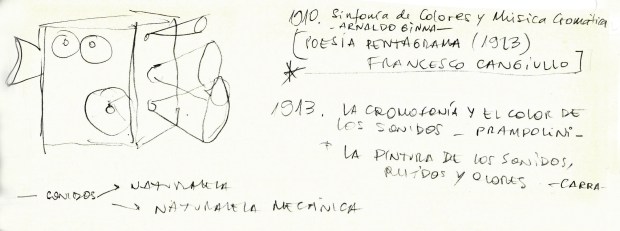 1910. Sinfonía de Colores y Música Cromática
- ARNALDO GINNA -
[POESÍA PENTAGRAMA (1923)
* FRANCESCO CANGIULLO]
1913. LA CROMOFONÍA Y EL COLOR DE
LOS SONIDOS - PRAMPOLINI -
* LA PINTURA DE LOS SONIDOS,
RUIDOS Y OLORES - CARRA -
- SONIDOS → NATURALEZA
→ NATURALEZA MECÁNICA